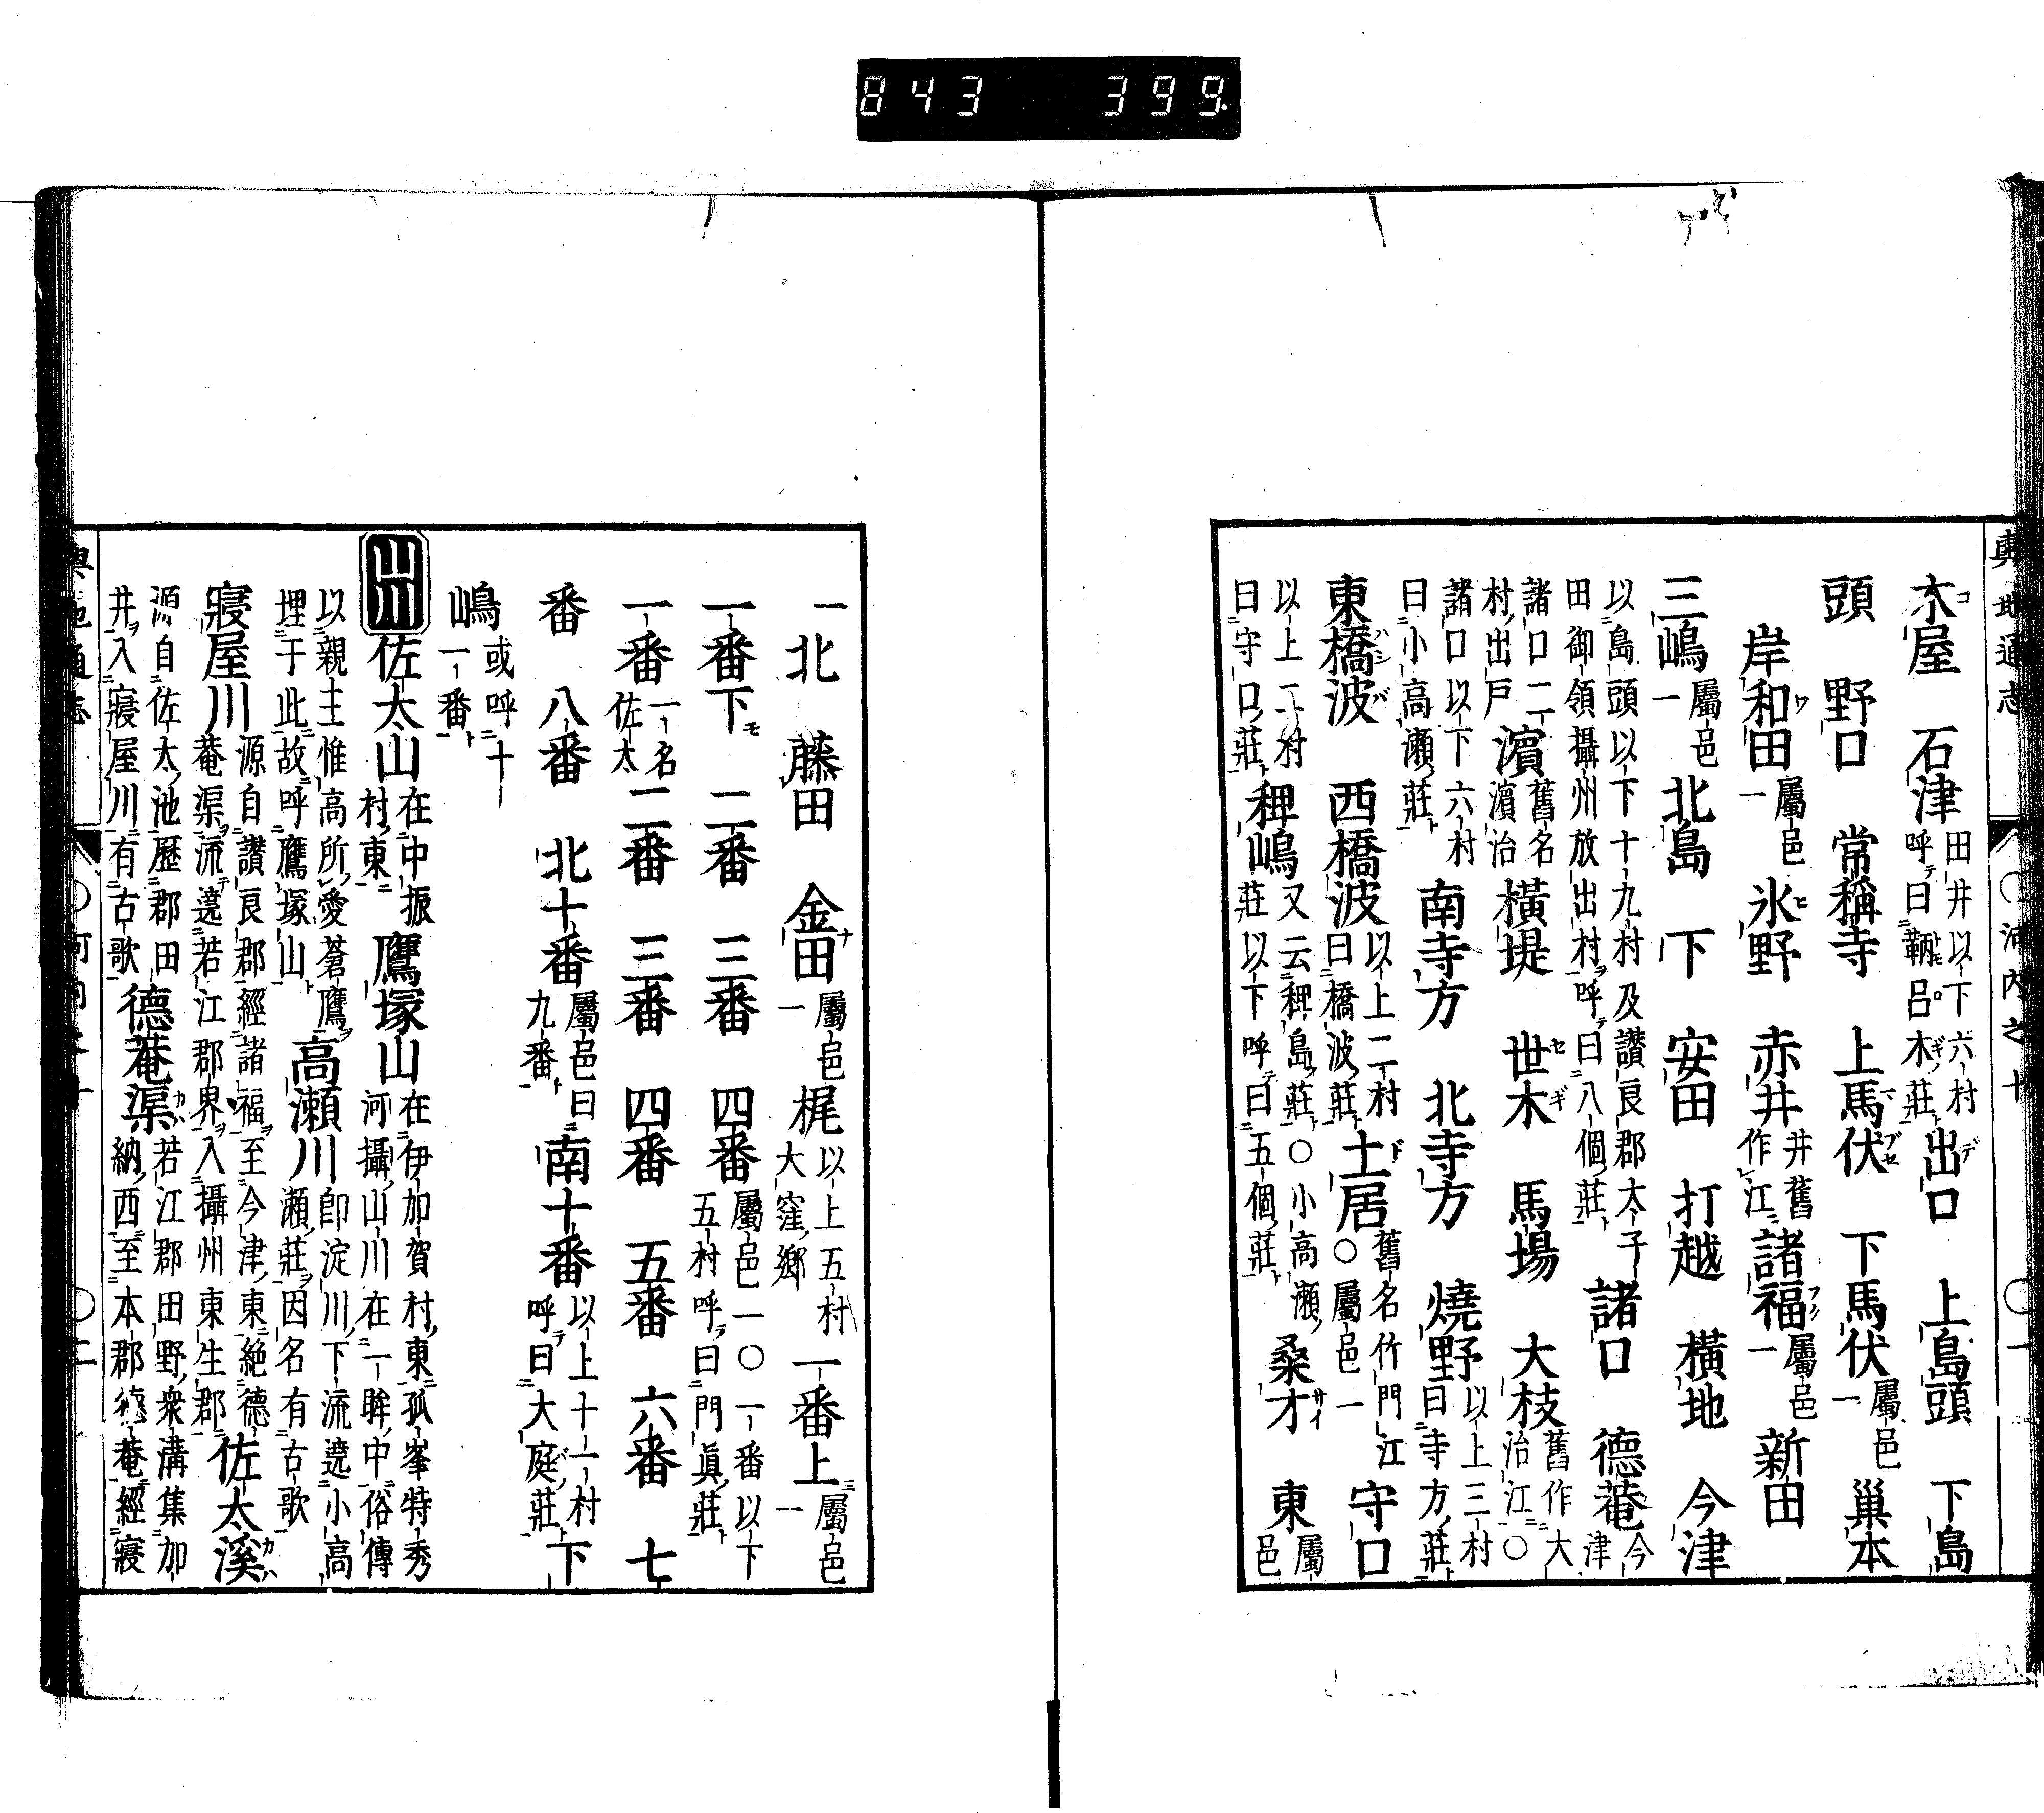 843 399
輿地通志 ○河內之十 ○一
木屋 石津 田井以下六村呼曰鞆呂木莊 出口 上島頭 下島
頭 野口 常稱寺 上馬伏 下馬伏 屬邑一 巢本
岸和田 屬邑一 氷野 赤井 井舊作江 諸福 屬邑一 新田
三嶋 屬邑一 北島 下 安田 打越 橫地 今津
以島頭以下十九村及讚良郡太子田御領攝州放出村呼曰八個莊 諸口 德菴 今津
諸口二村出戸 濱 舊名濱治 橫堤 世木 馬場 大枝 舊作大治江○
諸口以下六村曰小高瀨莊 南寺方 北寺方 燒野 以上三村曰寺方莊
東橋波 西橋波 以上二村曰橋波莊 土居 舊名竹門江○屬邑一 守口
以上二村曰守口莊 稗嶋 又云稗島莊○小高瀨莊以下呼曰五個莊 桑才 東 屬邑
一 北 藤田 金田 屬邑一 梶 以上五村大窪鄉 一番上 屬邑一
一番下 二番 三番 四番 屬邑一○一番以下五村呼曰門眞莊
一番 一名佐太 二番 三番 四番 五番 六番 七
番 八番 北十番 屬邑曰九番 南十番 以上十一村呼曰大庭莊 下
嶋 或呼十一番
山川 佐太山 在中振村東 鷹塚山 在伊加賀村東孤峯特秀河攝山川在一眸中俗傳
以親王惟高所愛蒼鷹埋于此故呼鷹塚山 高瀨川 卽淀川下流遶小高瀨莊因名有古歌
寢屋川 源自讚良郡經諸福至今津東絕德菴渠流遶若江郡界入攝州東生郡 佐太溪
源自佐太池歷郡田井入寢屋川有古歌 德菴渠 若江郡田野衆溝集加納西至本郡德菴經寢
輿地通志 ○河內之十 ○二